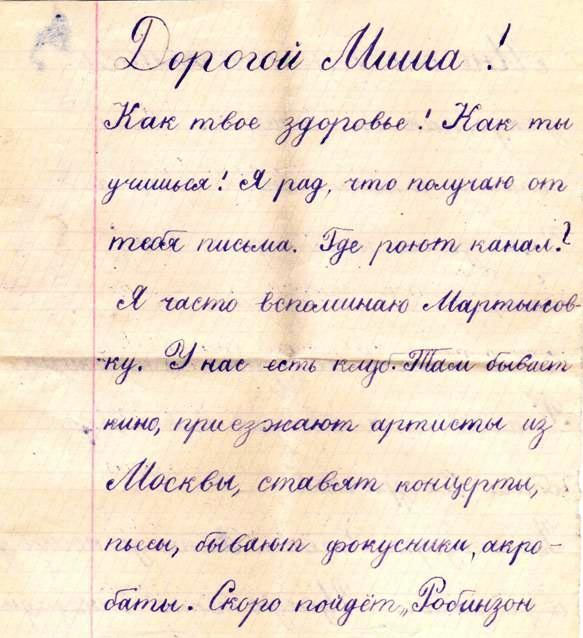 Дорогой Миша!
Как твое здоровье! Как ты
учишься! Я рад, что получаю от
тебя письма. Где роют канал?
Я часто вспоминаю Мартыновку-
ку. У нас есть клуб. Там бывает
кино, приезжают артисты из
Москвы, ставят концерты,
пьесы, бывают фокусники, акро-
баты. Скоро пойдёт „Робинзон